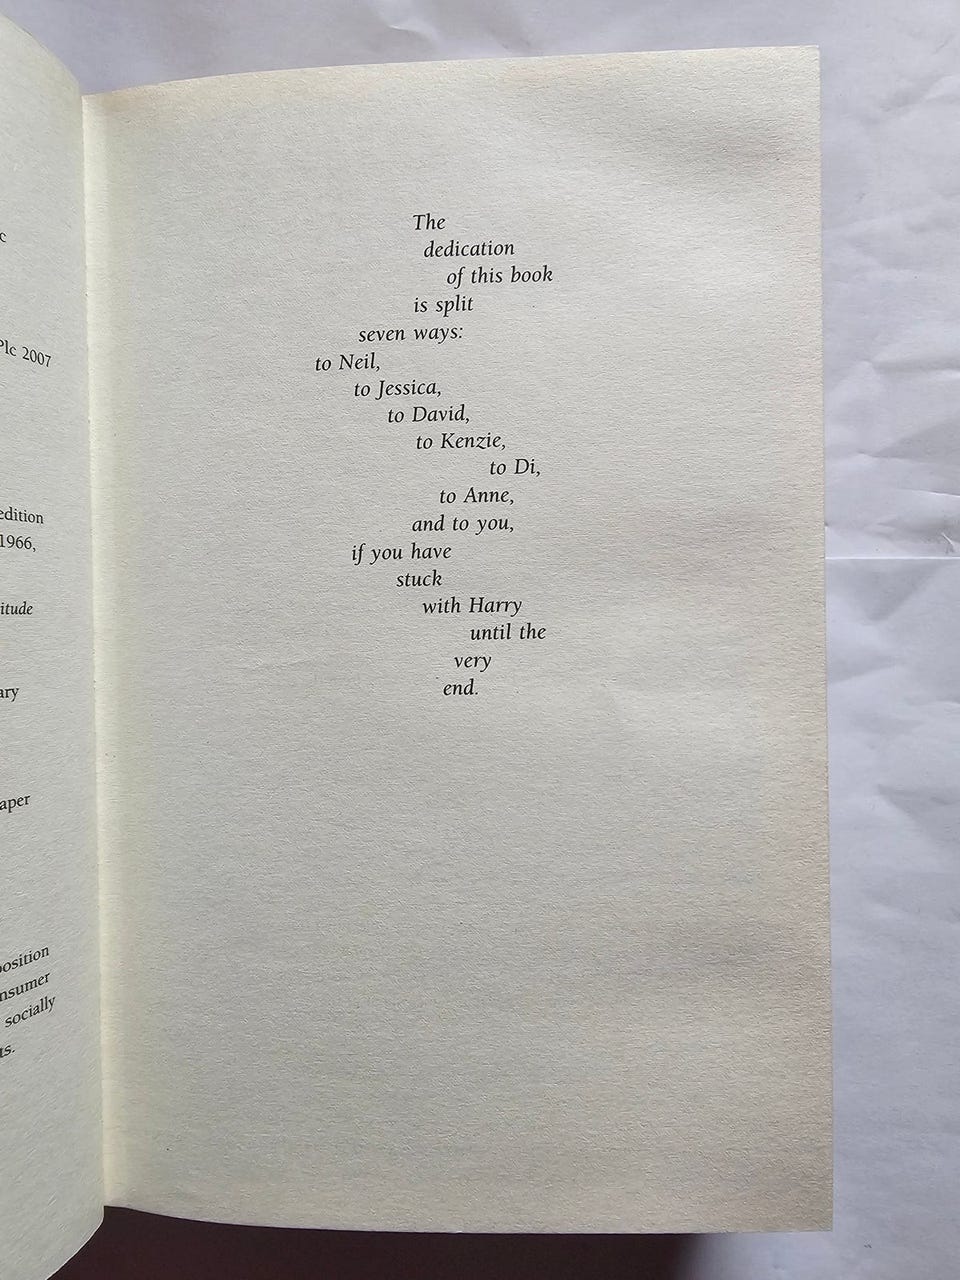 Plc 2007
edition
1966,
socially
The
dedication
of this book
is split
seven ways:
to Neil,
to Jessica,
to David,
to Kenzie,
to Di,
to Anne,
and to you,
if you have
stuck
with Harry
until the
very
end.